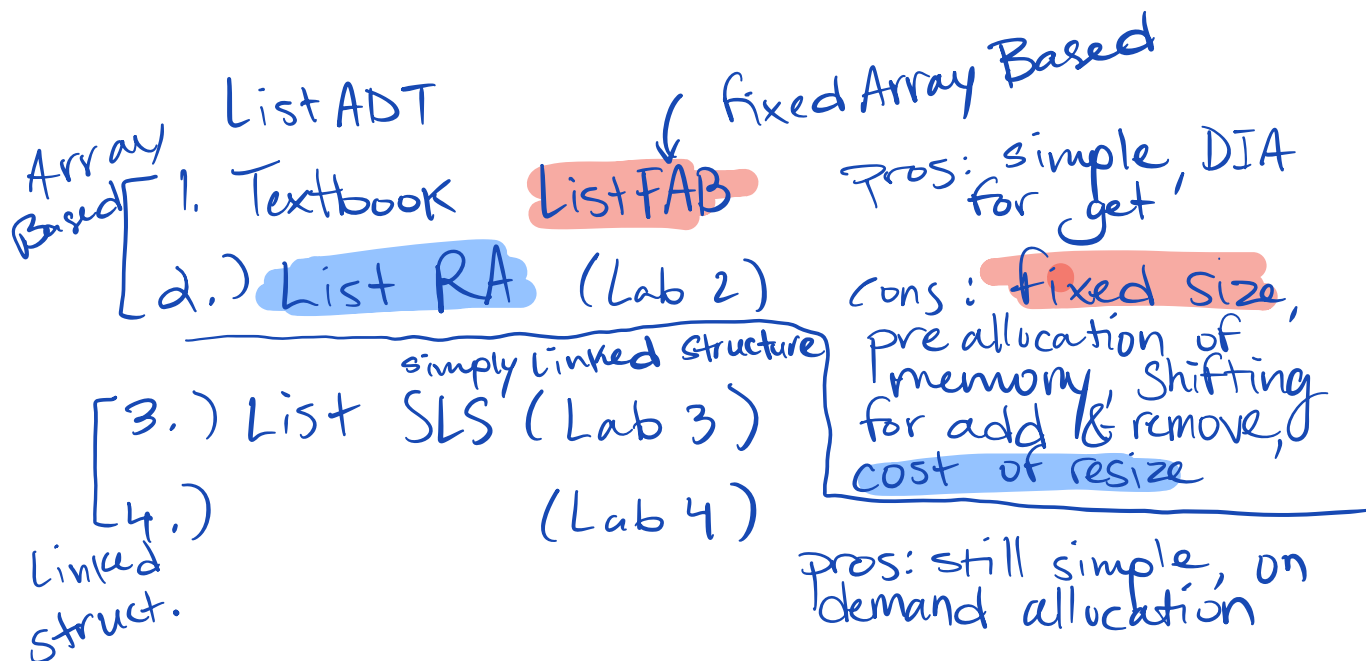 List ADT
fixed Array Based
Array
Based
1. Textbook ListFAB
2.) List RA (Lab 2)
pros: simple, DIA
for get
cons: fixed size,
pre allocation of
memory, shifting
for add & remove,
cost of resize
simply linked structure
3.) List SLS (Lab 3)
4.) (Lab 4)
Linked
struct.
pros: still simple, on
demand allocation